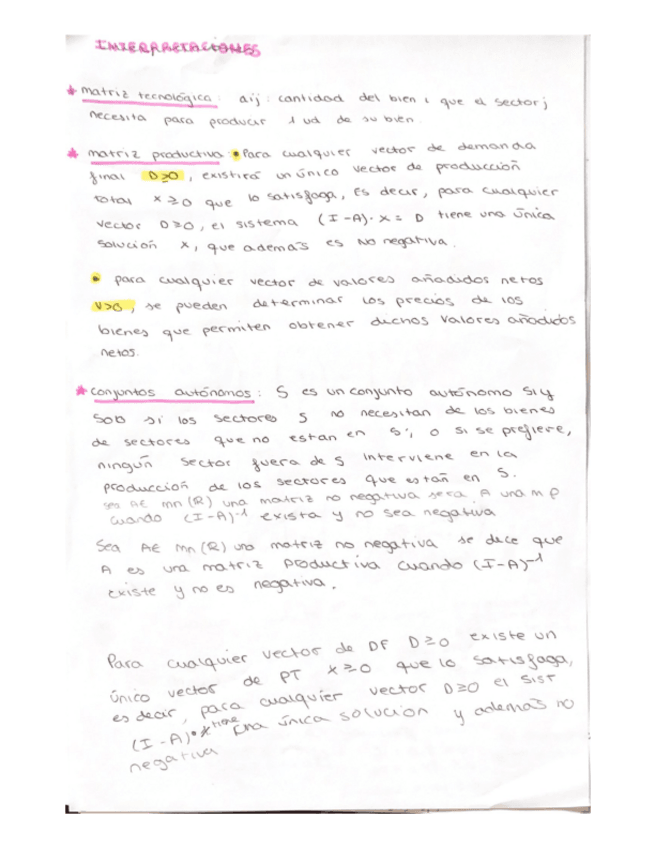 INTERPRETACIONES
* matriz tecnológica: aij: cantidad del bien i que el sector j
necesita para producir 1 ud de su bien.
* matriz productiva • Para cualquier vector de demanda
final D≥0, existirá un único vector de producción
total x≥0 que lo satisfaga, es decir, para cualquier
vector D≥0, el sistema (I-A)·x = D tiene una única
solución x, que además es no negativa.
• para cualquier vector de valores añadidos netos
V>0, se pueden determinar los precios de los
bienes que permiten obtener dichos valores añadidos
netos.
* conjuntos autónomos: S es un conjunto autónomo si y
solo si los sectores S no necesitan de los bienes
de sectores que no estan en S, o si se prefiere,
ningún sector fuera de S interviene en la
producción de los sectores que están en S.
sea A∈ mn(R) una matriz no negativa sera A una m p
cuando (I-A)⁻¹ exista y no sea negativa
Sea A∈ mn(R) una matriz no negativa se dice que
A es una matriz productiva cuando (I-A)⁻¹
existe y no es negativa.
Para cualquier vector de DF D≥0 existe un
único vector de PT x≥0 que lo satisfaga,
es decir, para cualquier vector D≥0 el sist
(I-A)·x tiene una única solución y además no
negativa